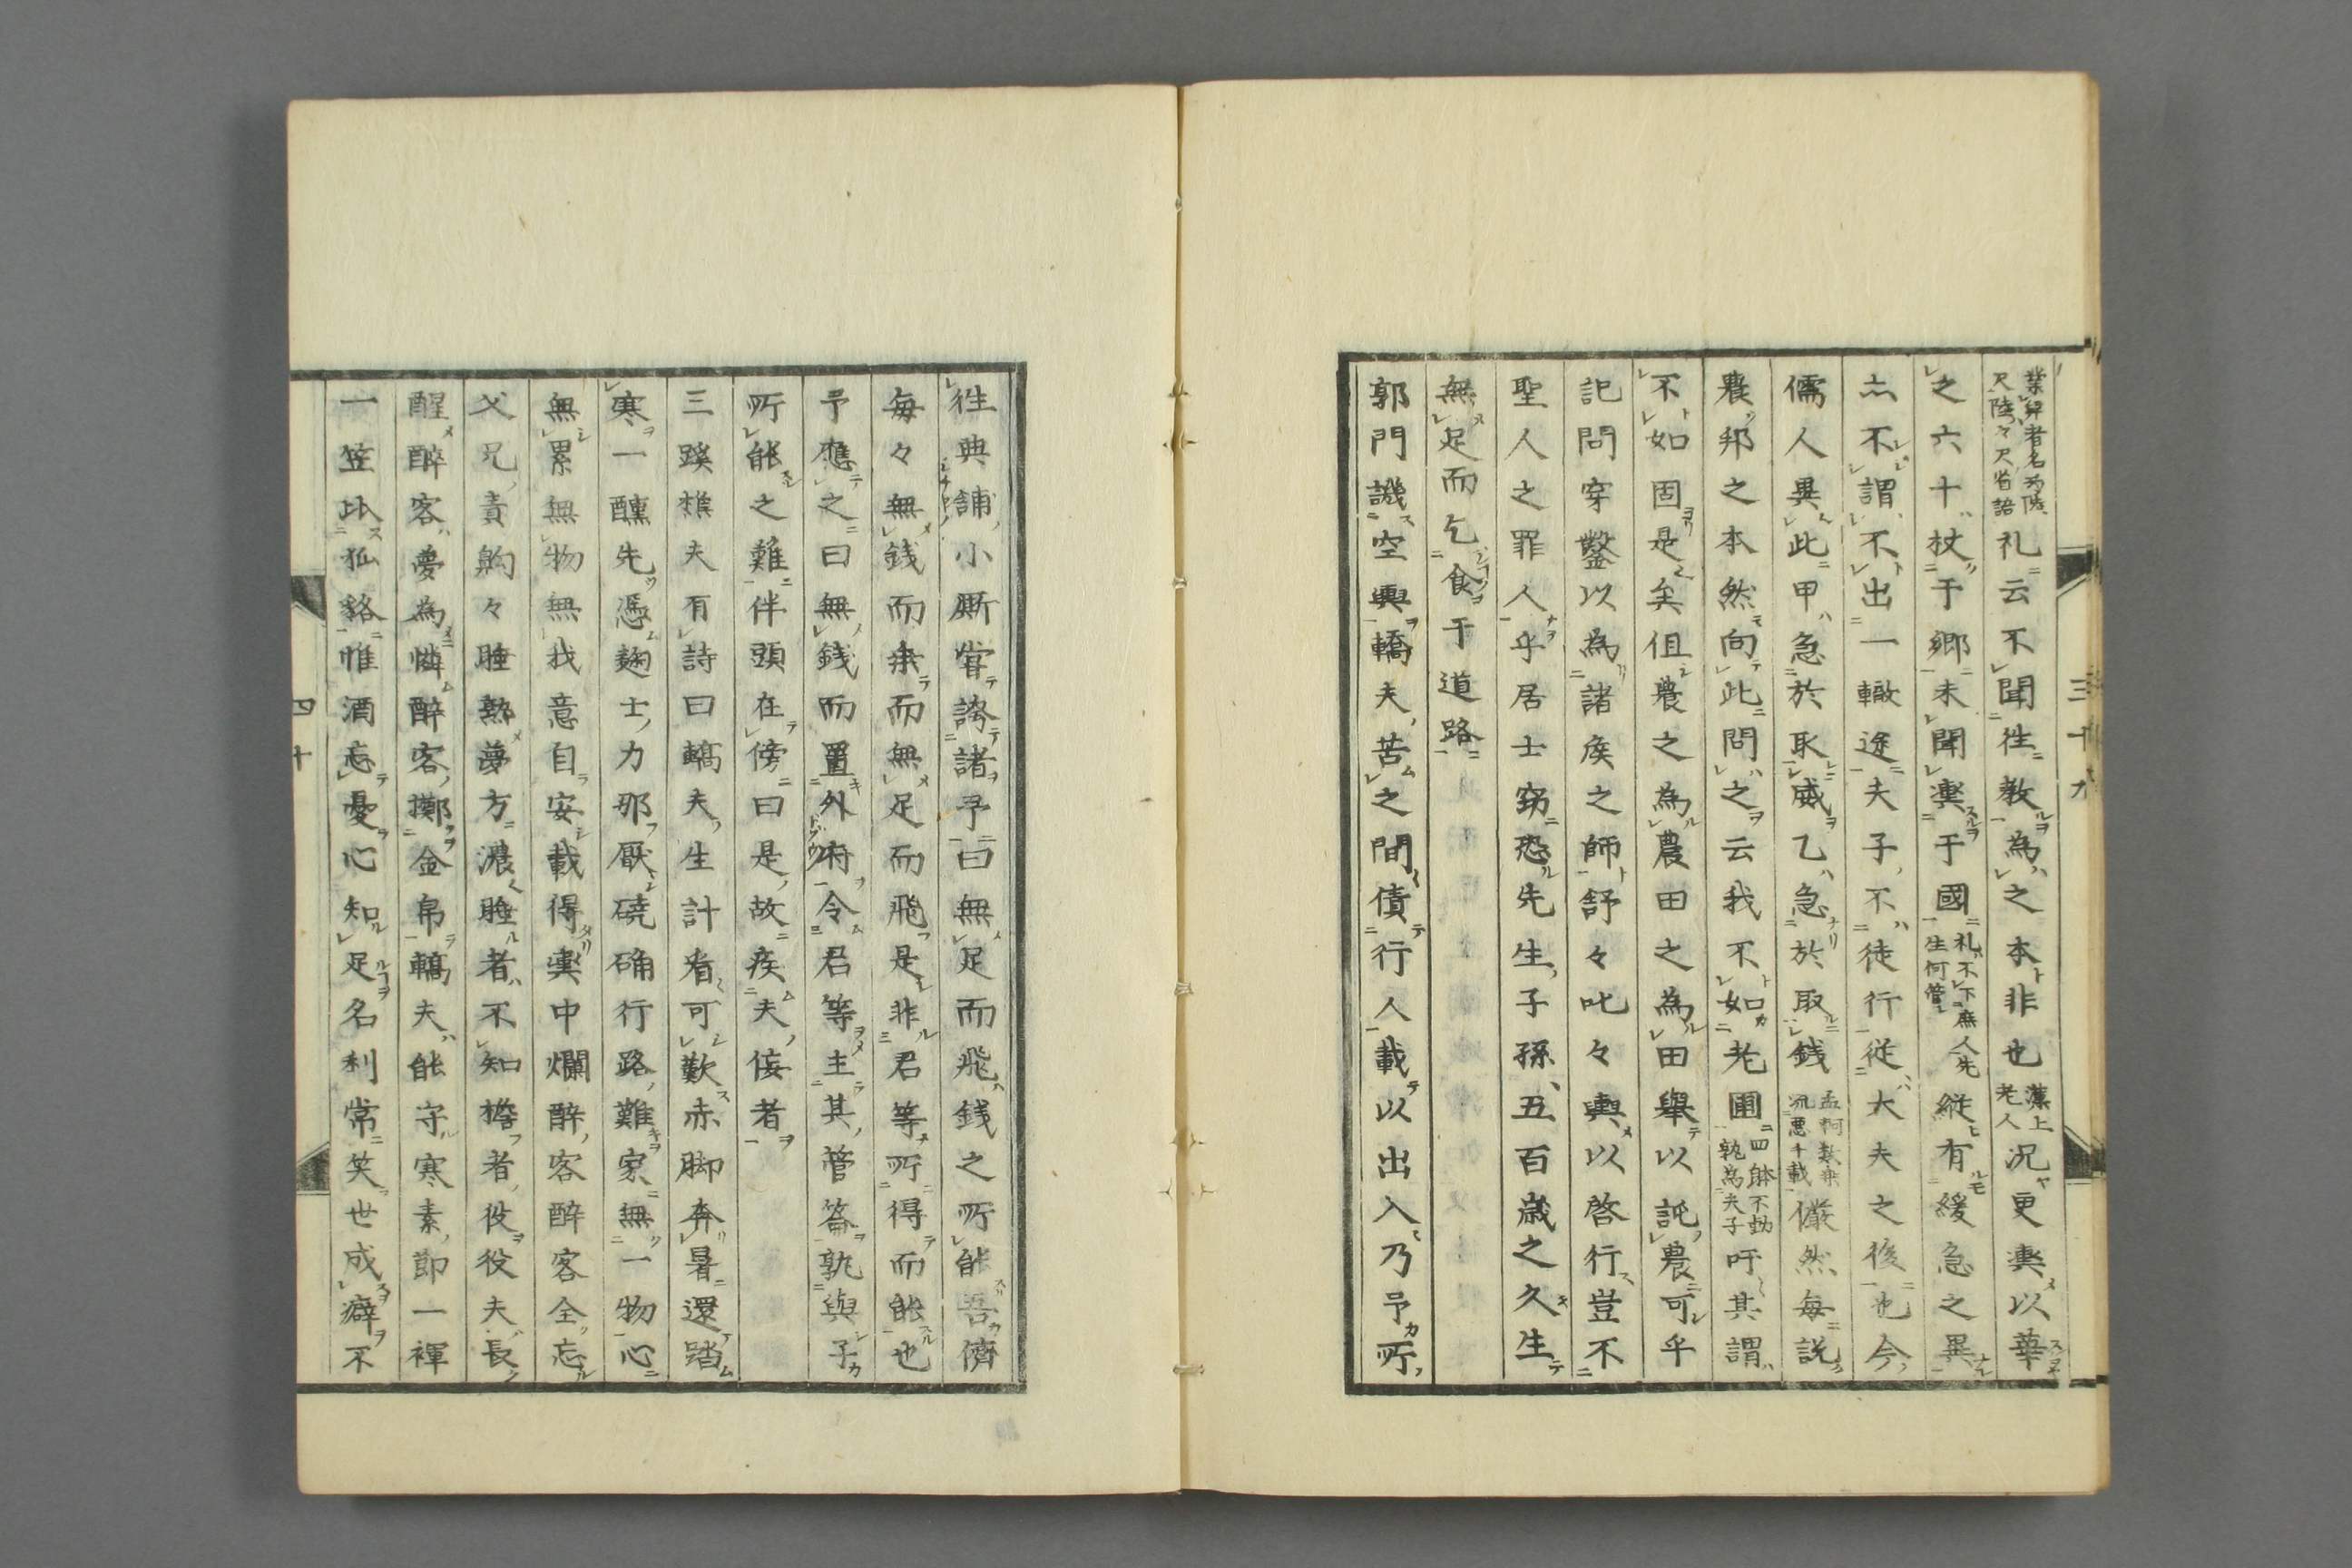 礼云不聞徃教為之本非也況更輿以華
之六十杖于郷未聞輿于國縦有緩急之異
亦不謂不出一轍途夫子不徒行従大夫之後也今
儒人異此甲急於取威乙急於取銭儼然每説
農邦之本然向此問之云我不如老圃吁其謂
不如固是矣但農之為農田之為田舉以託農可乎
記問穿鑿以為諸矦之師舒々叱々輿以啓行豈不
聖人之罪人乎居士窃恐先生子孫五百歳之久生
無足而乞食于道路
郭門譏空輿轎夫苦之間債行人載以出入乃予所
三十九
徃典舗小厮甞謗諸予曰無足而飛銭之所能吾儕
每々無銭而乗而無足而飛是非君等所得而能也
予應之曰無銭而置外府令君等主其管籥孰與子
所能之難伴頭在傍曰是故疾夫侫者
三蹊樵夫有詩曰轎夫生計看可歎赤脚奔暑還踏
寒一醺先憑麹士力那厭磽确行路難家無一物心
無累無物無我意自安載得輿中爛醉客醉客全忘
父兄責齁々睡熟夢方濃睡者不知擔者役役夫長
醒醉客夢為憐醉客擲金帛轎夫能守寒素節一褌
一笠比狐貉惟酒忘憂心知足名利常笑世成癖不
四十